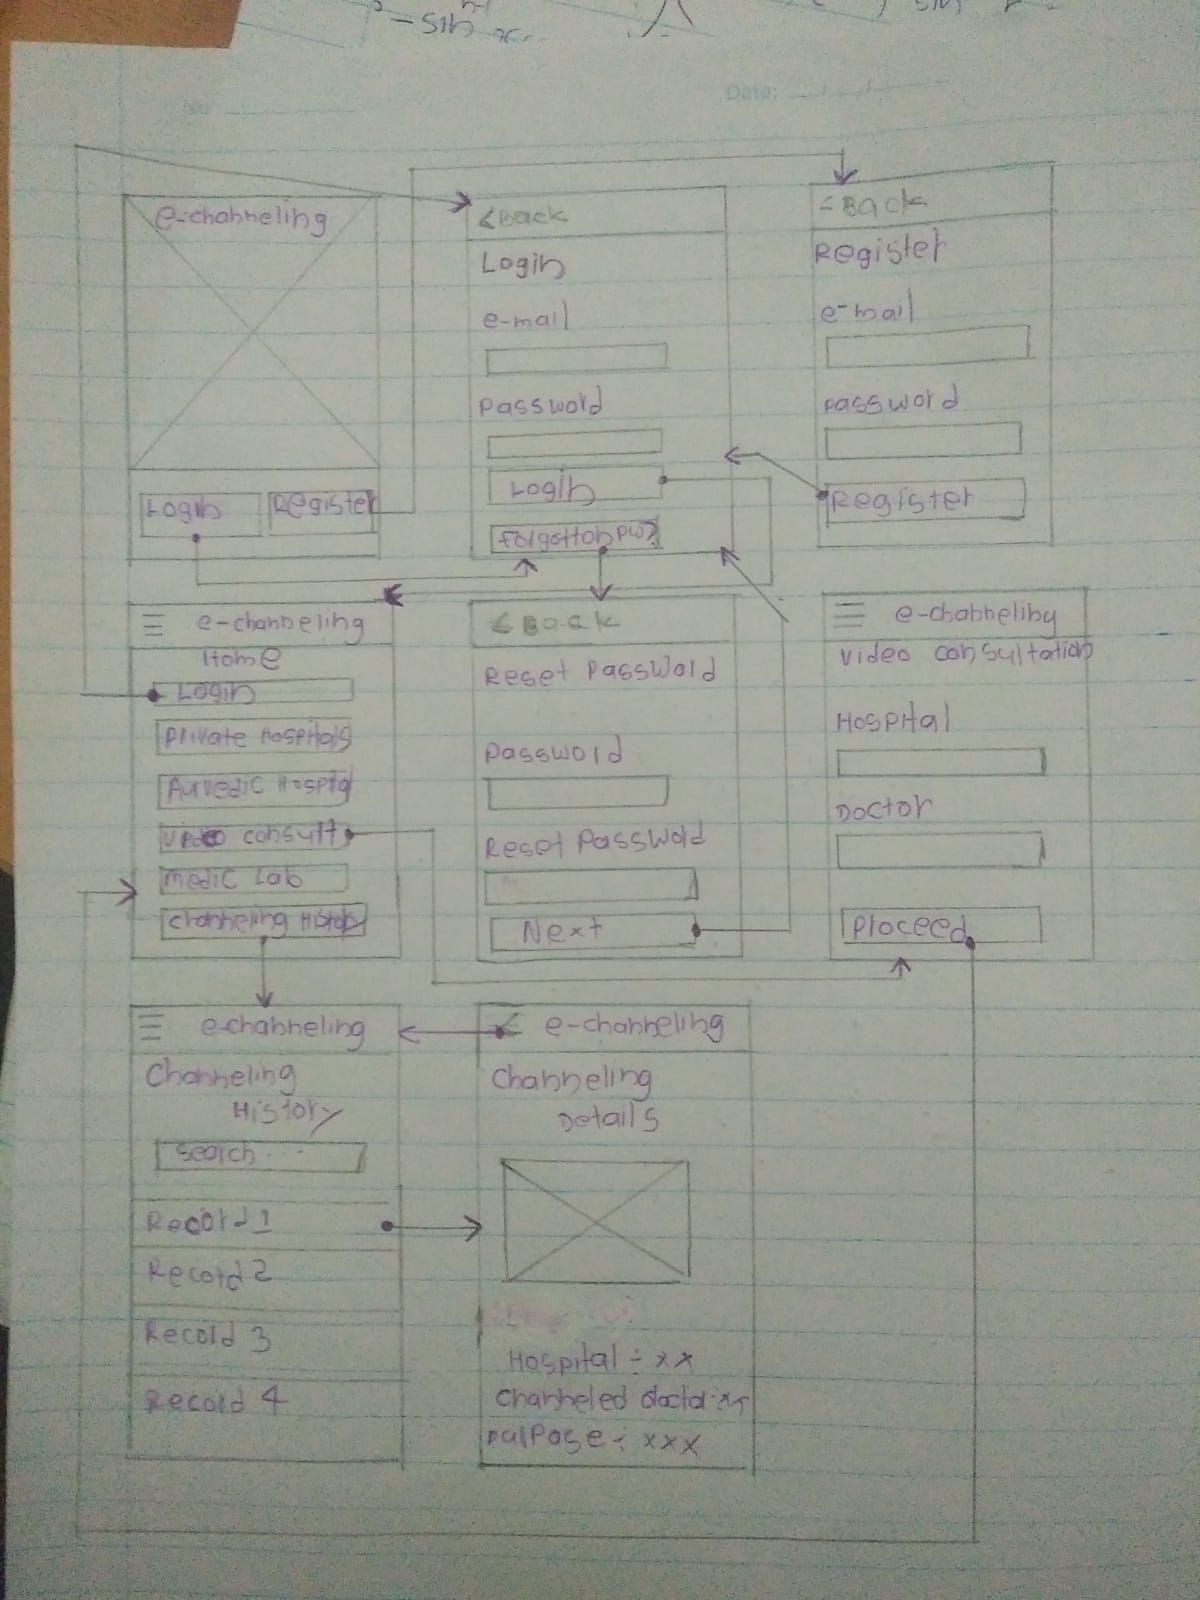 No
Date:
e-channeling
Login
Register
<Back
Login
e-mail
Password
Login
Forgotton pw?
<Back
Register
e-mail
password
Register
e-channeling
Home
Login
Private Hospitals
Aurvedic Hospital
Video consult
Medic Lab
Channeling History
<Back
Reset Password
Password
Reset Password
Next
e-channeling
Video consultation
Hospital
Doctor
Proceed
e-channeling
Channeling
History
Search...
Record 1
Record 2
Record 3
Record 4
< e-channeling
Channeling
Details
Hospital :- xx
Channeled doctor :- xx
Purpose :- xxx